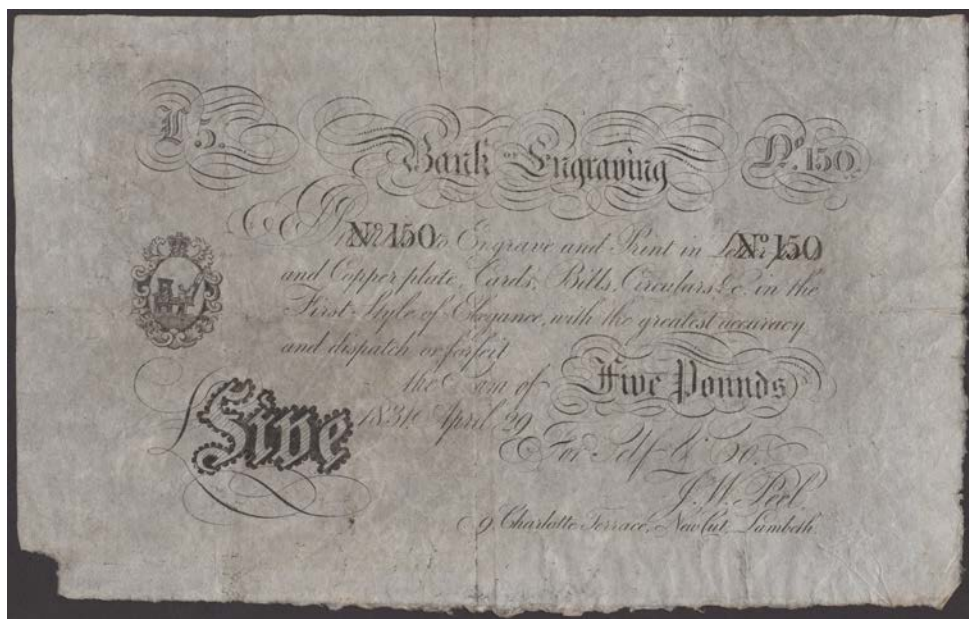 £5.
Bank of Engraving
No. 150
No 150 to Engrave and Print in No 150
and Copper plate, Cards, Bills, Circulars &c. in the
First Style of Elegance, with the greatest accuracy
and dispatch or forfeit
the Sum of Five Pounds
1831 April 29
Five
For Self & Co.
J. W. Peel
9, Charlotte Terrace, New Cut, Lambeth.